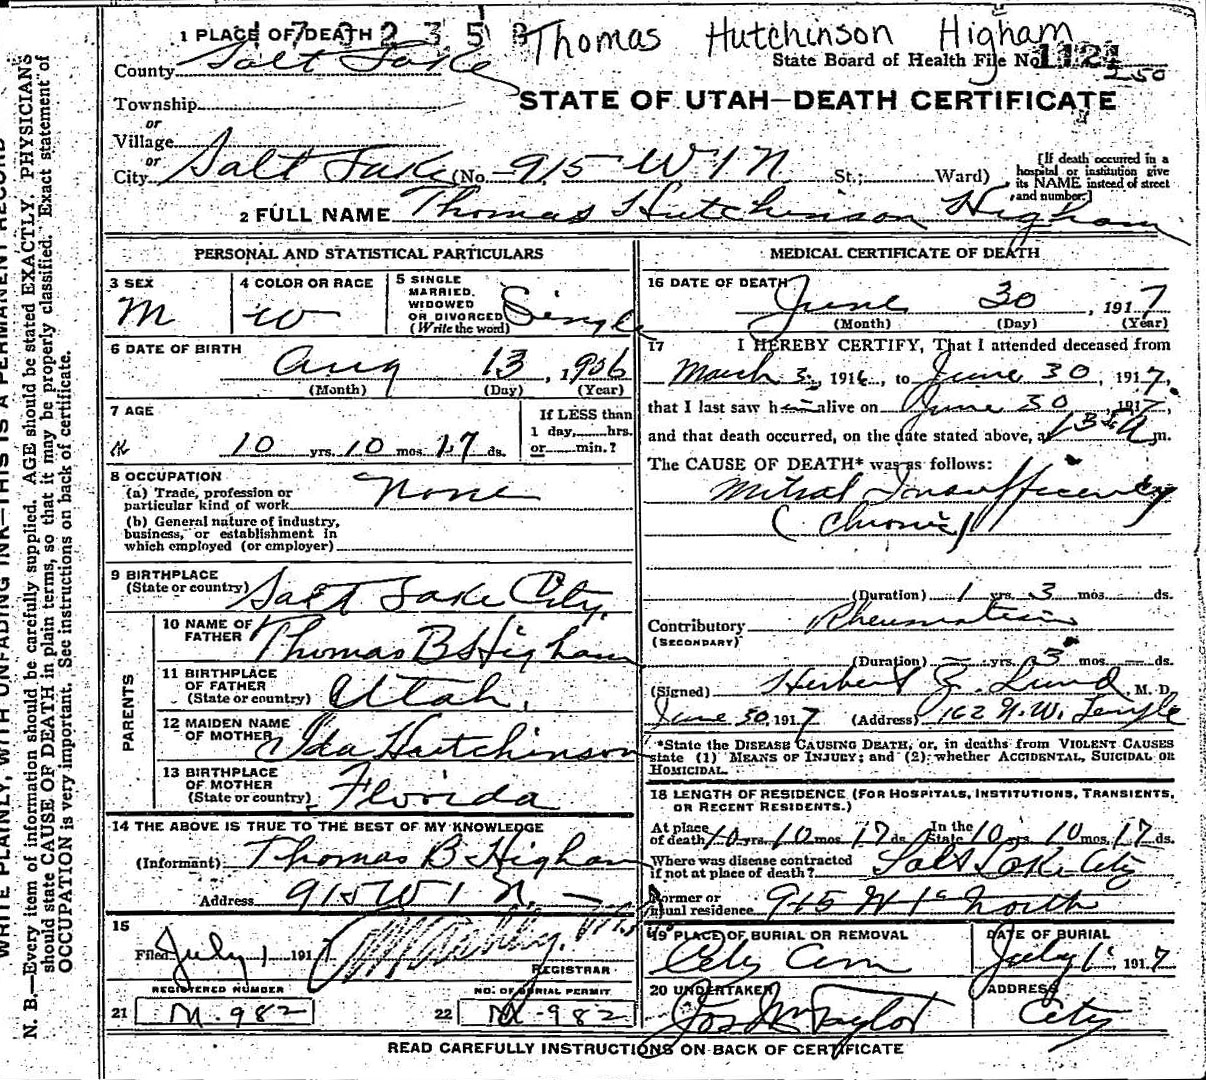 WRITE PLAINLY, WITH UNFADING INK—THIS IS A PERMANENT RECORD
N. B.—Every item of information should be carefully supplied. AGE should be stated EXACTLY. PHYSICIANS
should state CAUSE OF DEATH in plain terms, so that it may be properly classified. Exact statement of
OCCUPATION is very important. See instructions on back of certificate.
Thomas Hutchinson Higham
1 PLACE OF DEATH
State Board of Health File No. 1121
250
County Salt Lake
STATE OF UTAH—DEATH CERTIFICATE
Township
or
Village
or
City Salt Lake (No. 915 W 1 N St.; Ward)
[If death occurred in a
hospital or institution give
its NAME instead of street
and number.]
2 FULL NAME Thomas Hutchinson Higham
PERSONAL AND STATISTICAL PARTICULARS
3 SEX
M
4 COLOR OR RACE
W
5 SINGLE
MARRIED,
WIDOWED
OR DIVORCED
(Write the word)
Single
6 DATE OF BIRTH
Aug 13, 1906
(Month) (Day) (Year)
7 AGE
10 yrs. 10 mos. 17 ds.
If LESS than
1 day, hrs.
or min.?
8 OCCUPATION
None
(a) Trade, profession or
particular kind of work
(b) General nature of industry,
business, or establishment in
which employed (or employer)
9 BIRTHPLACE
(State or country)
Salt Lake City.
PARENTS
10 NAME OF
FATHER
Thomas B Higham
11 BIRTHPLACE
OF FATHER
(State or country)
Utah.
12 MAIDEN NAME
OF MOTHER
Ida Hutchinson
13 BIRTHPLACE
OF MOTHER
(State or country)
Florida
14 THE ABOVE IS TRUE TO THE BEST OF MY KNOWLEDGE
(Informant) Thomas B Higham
Address 915 W 1 N.
15
Filed July 1 1917
REGISTRAR
REGISTERED NUMBER
21 M-982
NO. OF BURIAL PERMIT
22 M-982
MEDICAL CERTIFICATE OF DEATH
16 DATE OF DEATH
June 30, 1917
(Month) (Day) (Year)
17 I HEREBY CERTIFY, That I attended deceased from
March 3, 1916, to June 30, 1917,
that I last saw h alive on June 30 1917,
and that death occurred, on the date stated above, at m.
The CAUSE OF DEATH* was as follows:
Mitral Insufficiency
(Chronic)
(Duration) 1 yrs. 3 mos. ds.
Contributory Rheumatism
(SECONDARY)
(Duration) — yrs. 3 mos. — ds.
(Signed) Herbert Z. Lund, M. D.
June 30 1917 (Address) 162 N. W. Temple
*State the DISEASE CAUSING DEATH, or, in deaths from VIOLENT CAUSES
state (1) MEANS OF INJURY; and (2) whether ACCIDENTAL, SUICIDAL OR
HOMICIDAL.
18 LENGTH OF RESIDENCE (FOR HOSPITALS, INSTITUTIONS, TRANSIENTS,
OR RECENT RESIDENTS.)
At place
of death 10 yrs. 10 mos. 17 ds. In the
State 10 yrs. 10 mos. 17 ds.
Where was disease contracted
if not at place of death? Salt Lake City
Former or
usual residence 915 W 1st North
19 PLACE OF BURIAL OR REMOVAL
City Cem
DATE OF BURIAL
July 1 1917
20 UNDERTAKER
Jos Wm Taylor
ADDRESS
City
READ CAREFULLY INSTRUCTIONS ON BACK OF CERTIFICATE